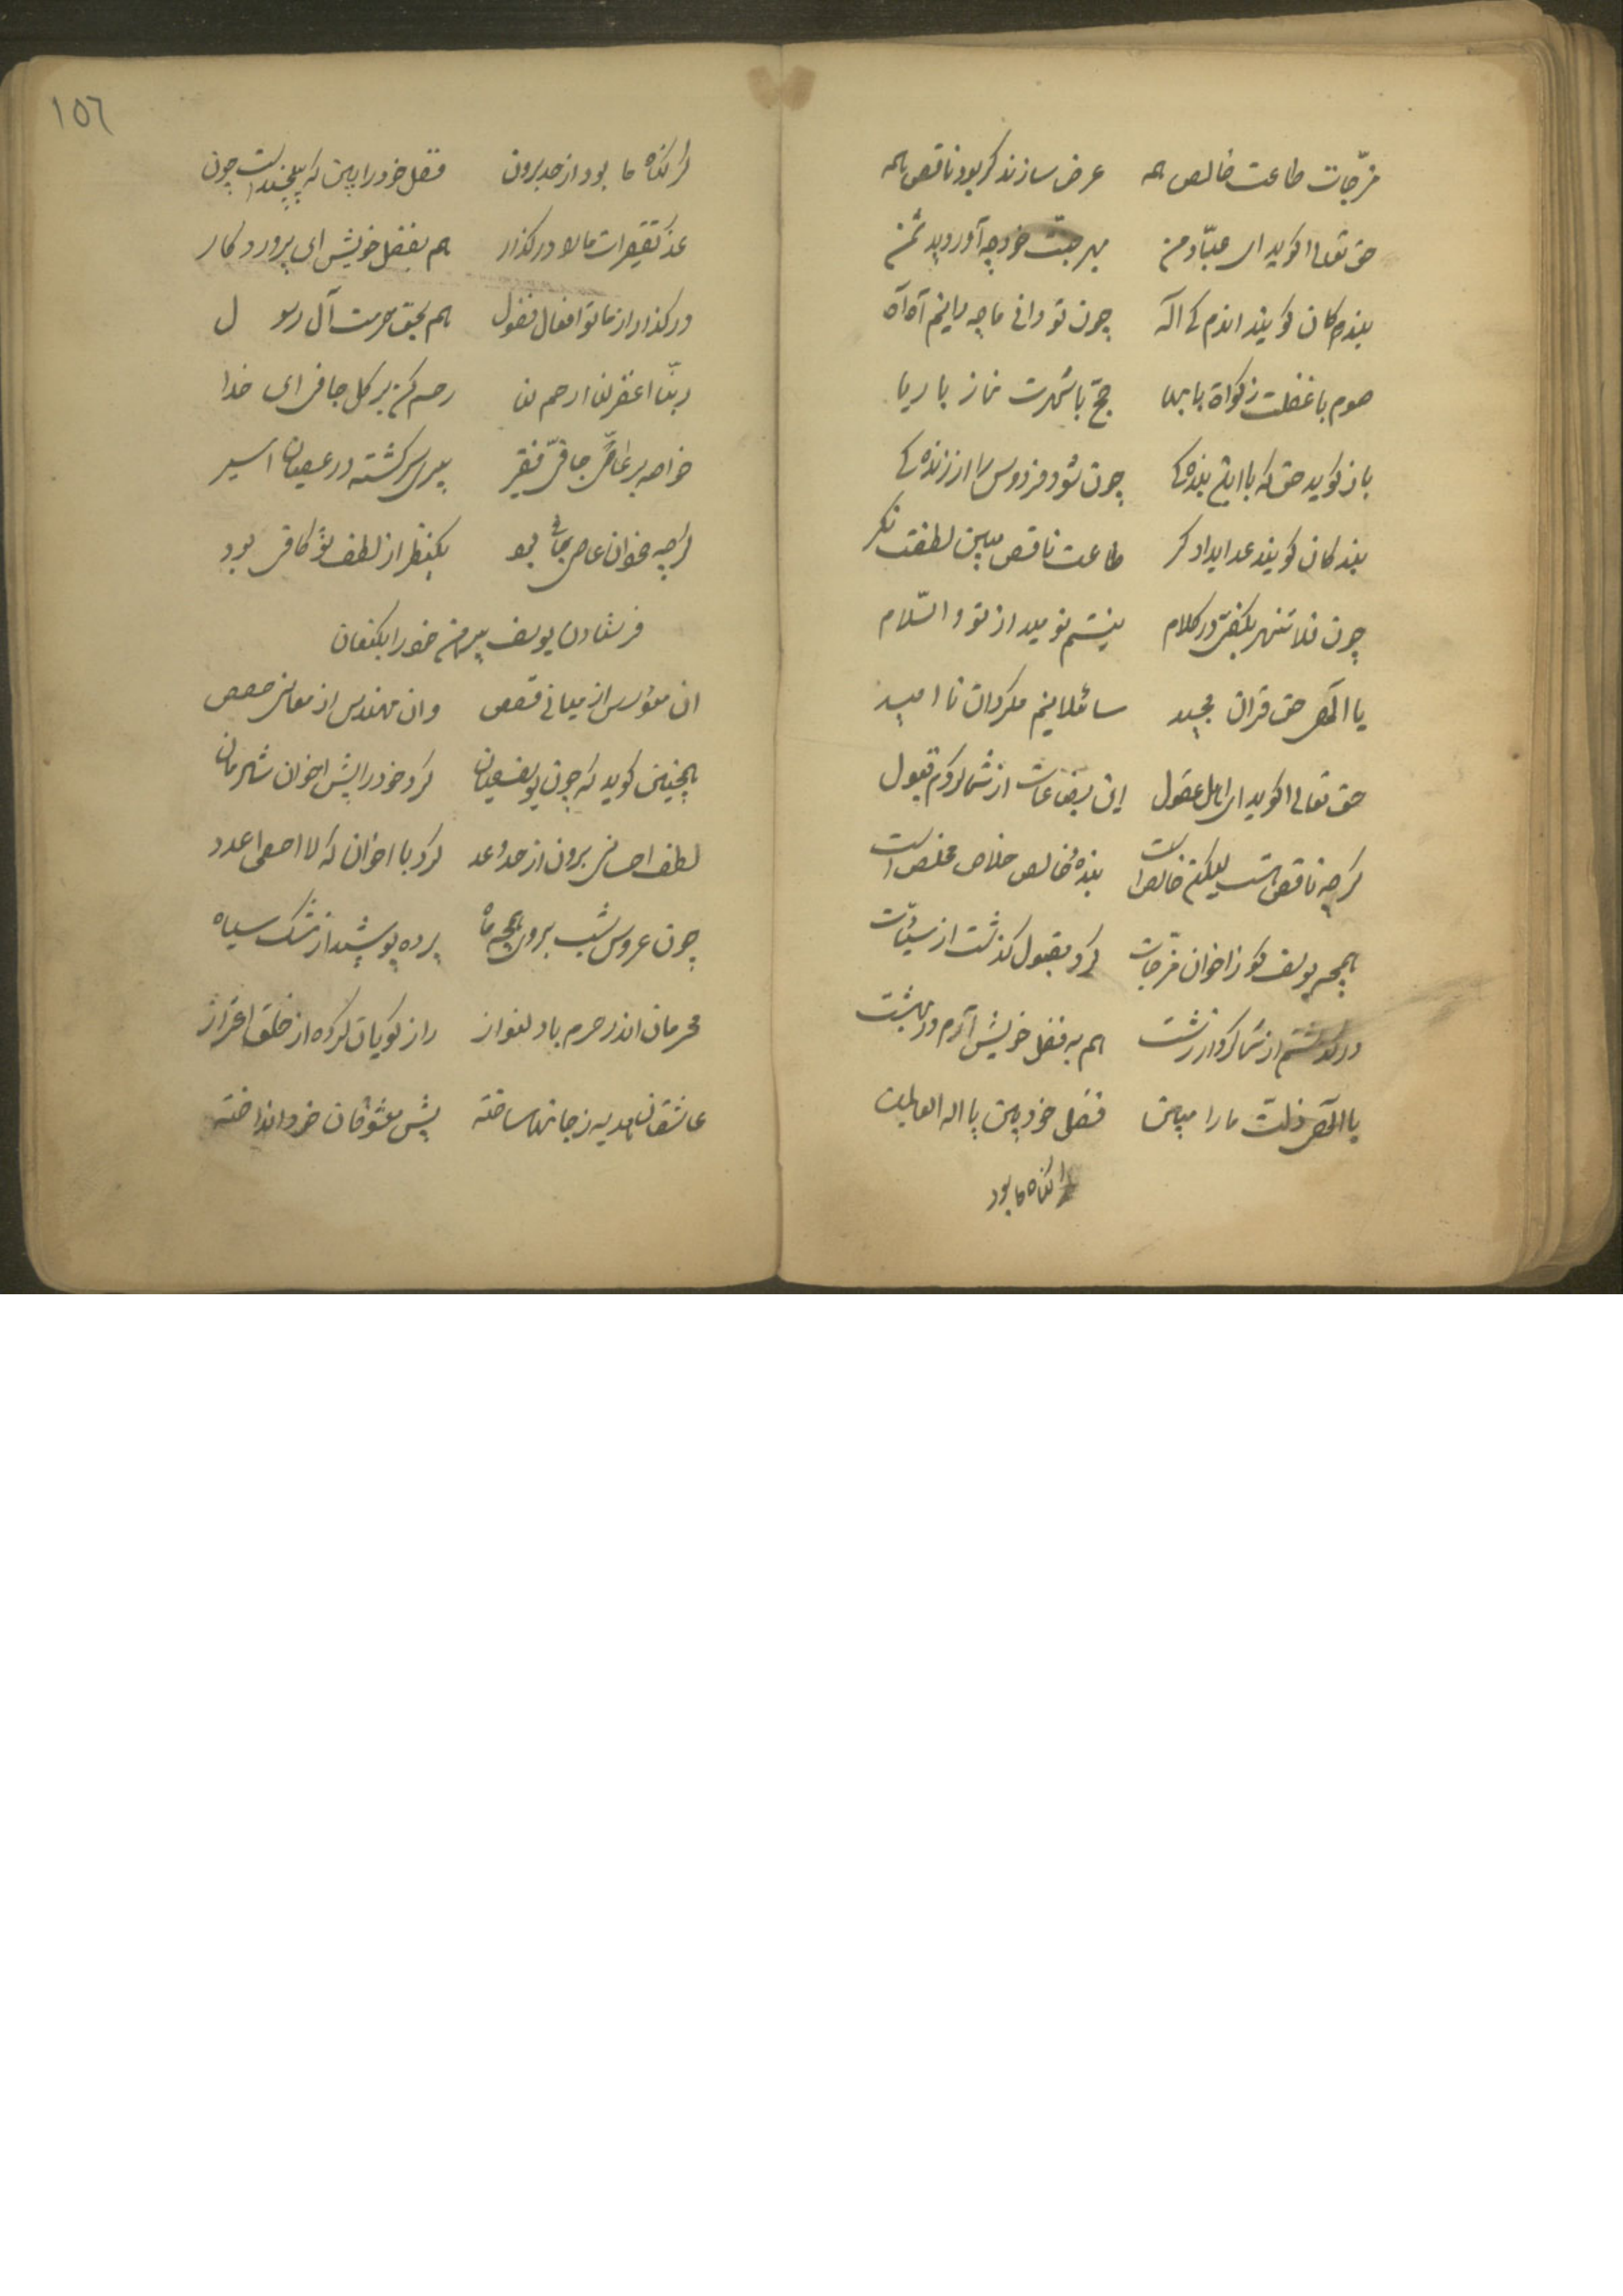 مزجات طاعت خالص همه عرض سازند کر بود ناقص همه
حق تعالی کوید ای عباد من بهر جنت خود چه آوردید ثمن
کویند اندم کای اله چون تو دانی ما چه دانیم آه آه
صوم با غفلت زکواة با بها حج با شهرت نماز با ریا
باز کوید حق که با این بنده کی چون شود فردوس را ارزنده کی
بندکان کویند طاعت ناقص مبین لطفت نکر
چون فلا تنهر بکفتی در کلام نیستم نومید از تو والسلام
یا الهی حق قران مجید سائلانیم مکردان نا امید
حق تعالی کوید ای اهل عقول این بضاعات از شما کردم قبول
کرچه ناقص هست لیکن خالص است بندهٔ خالص خلاص مخلص است
همچو یوسف کو ز اخوان مزجات کرد مقبول کذشت از سیئات
در کذشتم از شما کردار زشت هم به فضل خویش آرم در بهشت
یا الهی ذلت ما را مبین فضل خود بین یا اله العالمین
کر کناه ما بود
١٥٦
کر کناه ما بود از حد برون فضل خود را بین که است چون
عذر تقصیرات ما را در کذار هم بفضل خویش ای پروردکار
در کذار از ما تو افعال فضول هم بحق حرمت آل رسول
ربنا اغفر لنا ارحم لنا رحم کن بر کل جافی ای خدا
خاصه بر عاصی جافی فقیر پیر سرکشته در عصیان اسیر
کرچه عاصی بود یکنظر از لطف تو کافی بود
فرستادن یوسف پیرهن خود را بکنعان
ان مؤسس از مبانی قصص وان مهندس از معانی حصص
همچنین کوید که چون یوسف عیان کرد خود را پیش اخوان شادمان
لطف احسانی برون از حد و عد کرد با اخوان که لا احصی عدد
چون عروس شب بروی همچو ماه پرده پوشید از مشک سیاه
محرمان اندر حرم با دلنواز راز کویان کرده از خلق احتراز
عاشقان هدیه ز جانها ساخته پیش معشوقان خود انداخته